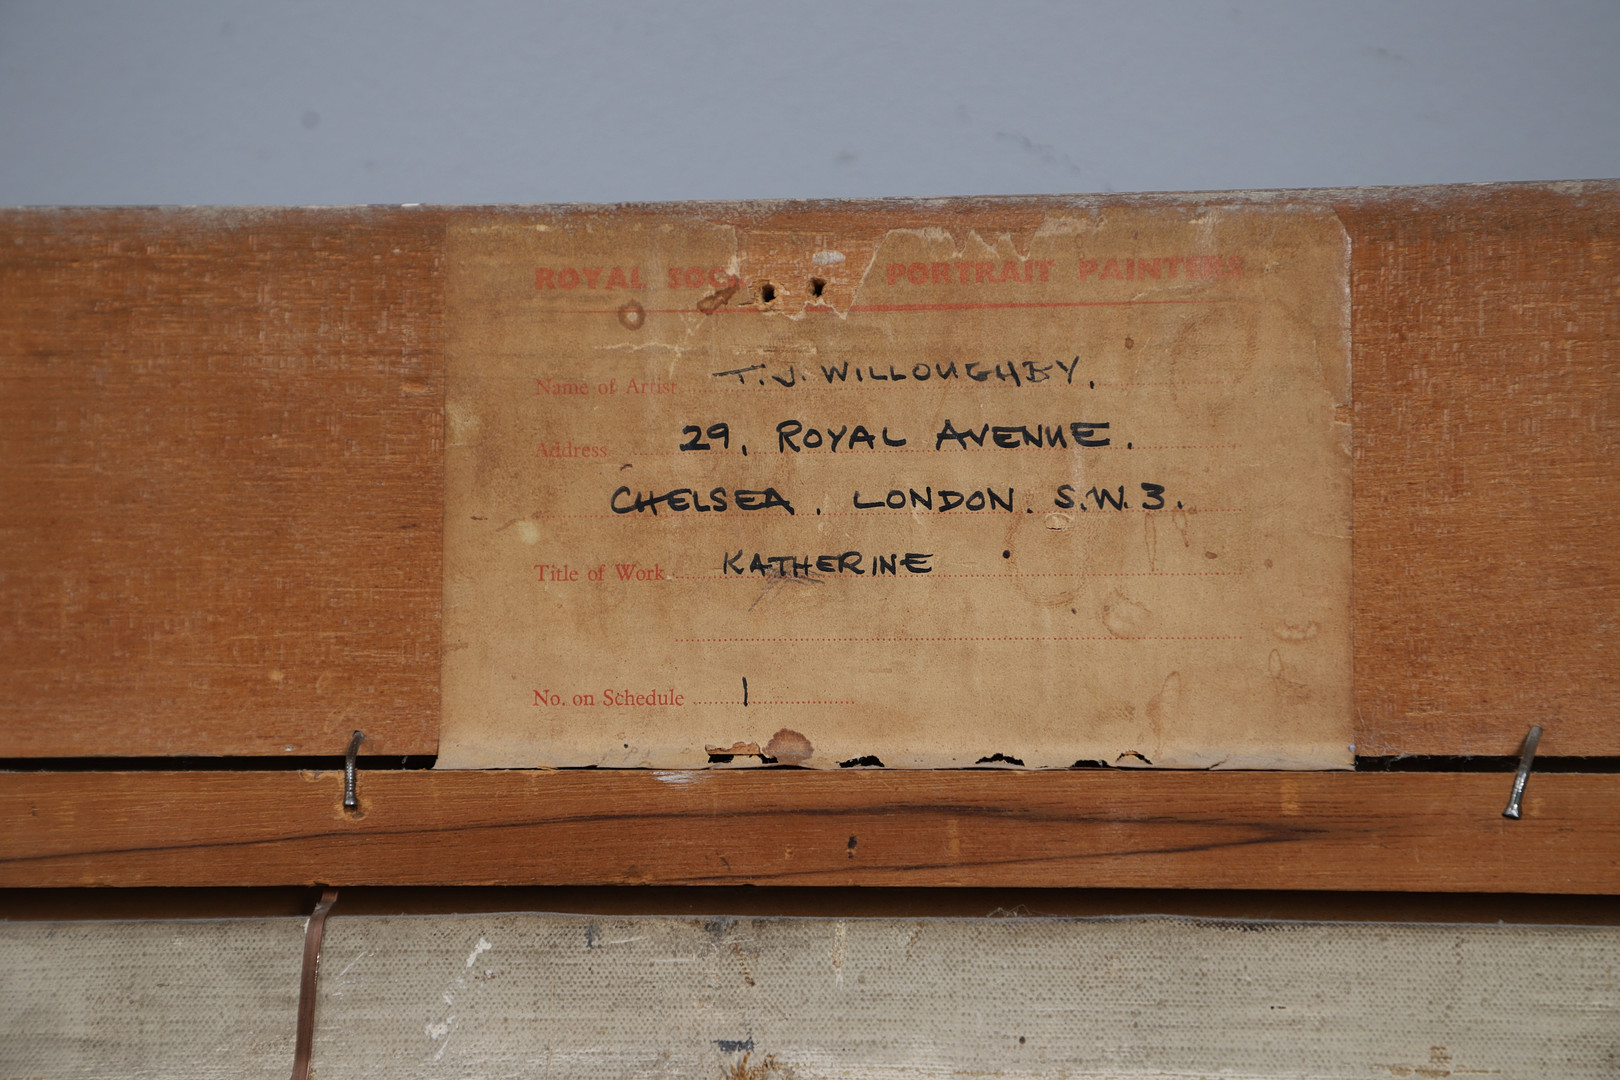 ROYAL SOC PORTRAIT PAINTERS
Name of Artist T.J. WILLOUGHBY.
Address 29, ROYAL AVENUE.
CHELSEA, LONDON. S.W.3.
Title of Work KATHERINE
No. on Schedule 1